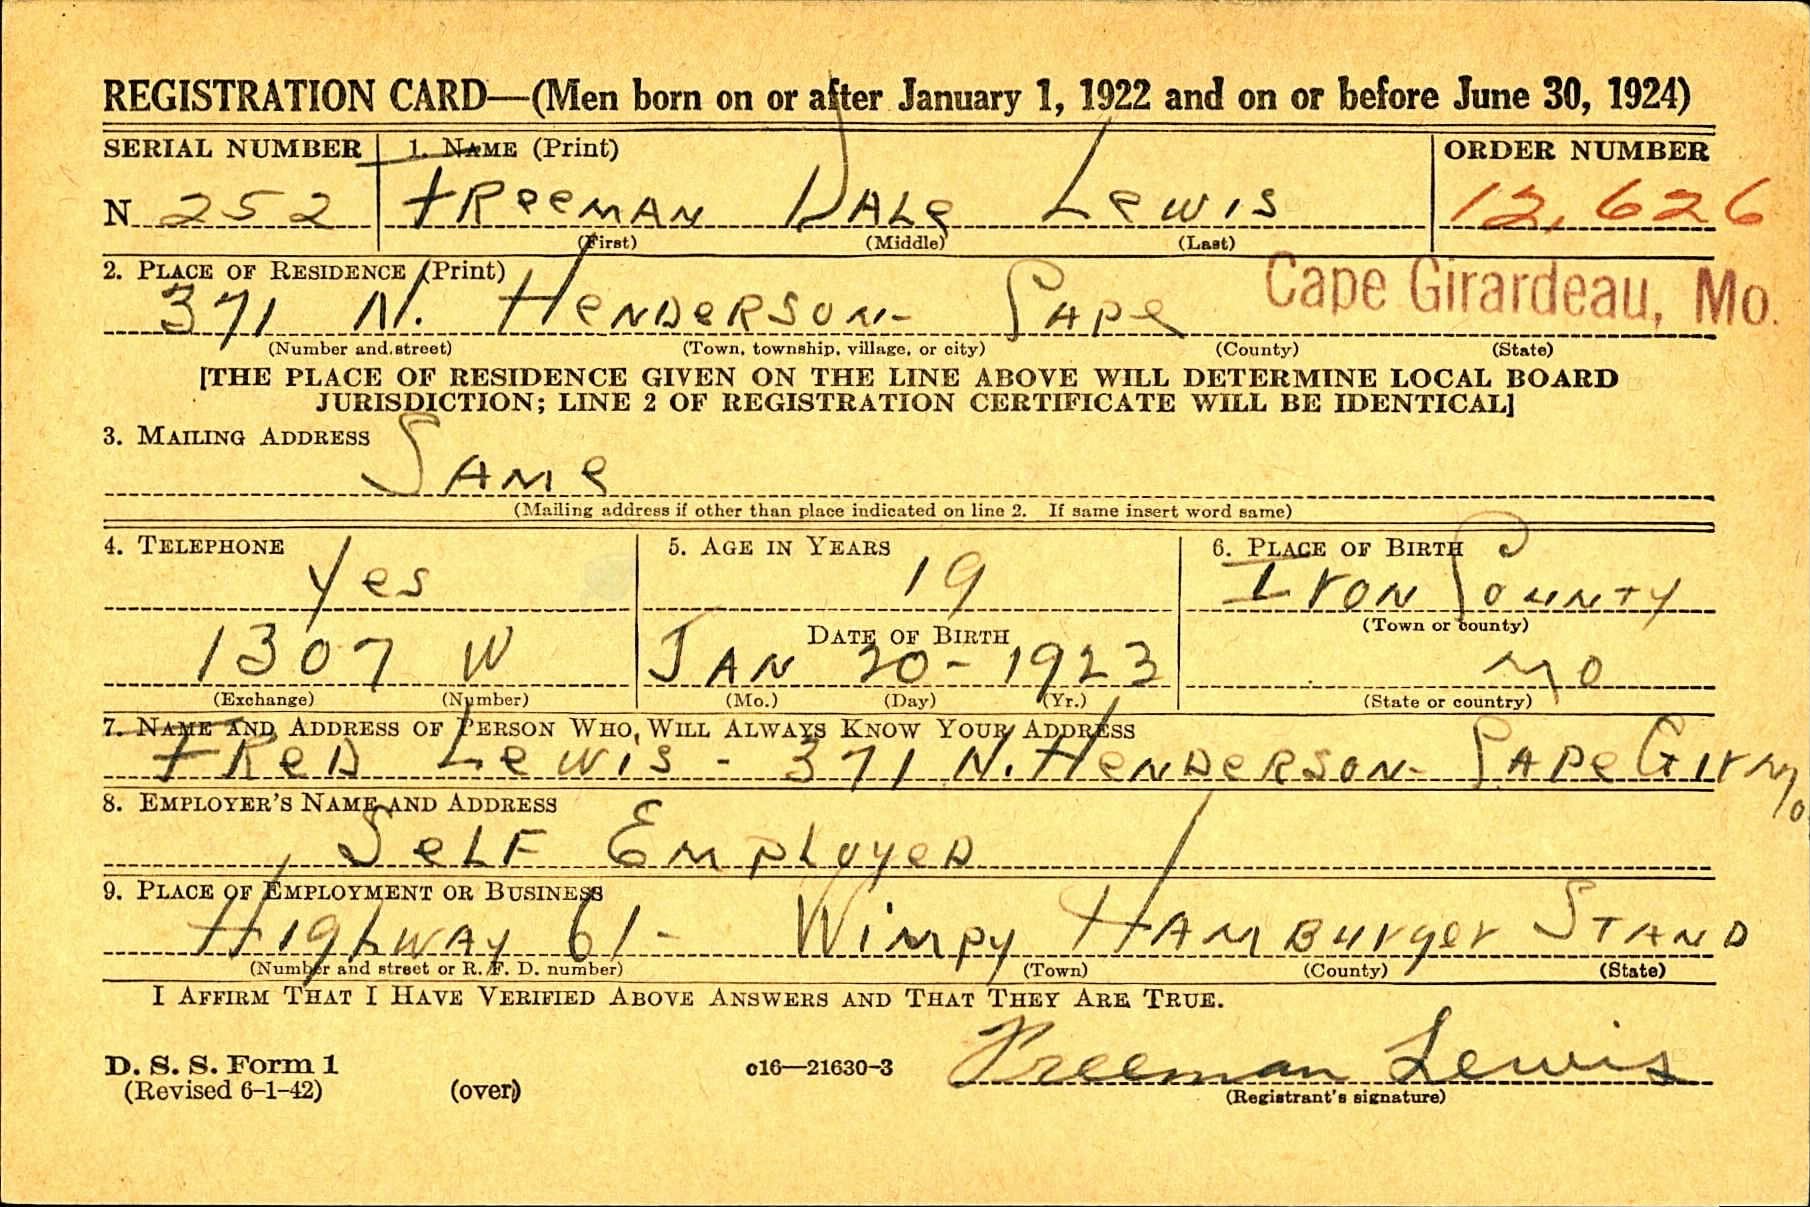 REGISTRATION CARD—(Men born on or after January 1, 1922 and on or before June 30, 1924)
SERIAL NUMBER 1. NAME (Print) ORDER NUMBER
N 252 FReeMAN DALe LewIS 12,626
(First) (Middle) (Last)
2. PLACE OF RESIDENCE (Print)
371 N. HeNDeRSON- CAPe Cape Girardeau, Mo.
(Number and street) (Town, township, village, or city) (County) (State)
[THE PLACE OF RESIDENCE GIVEN ON THE LINE ABOVE WILL DETERMINE LOCAL BOARD
JURISDICTION; LINE 2 OF REGISTRATION CERTIFICATE WILL BE IDENTICAL]
3. MAILING ADDRESS
SAMe
(Mailing address if other than place indicated on line 2. If same insert word same)
4. TELEPHONE 5. AGE IN YEARS 6. PLACE OF BIRTH
Yes 19 Iron County
(Town or county)
DATE OF BIRTH
1307 W JAN 20-1923 Mo
(Exchange) (Number) (Mo.) (Day) (Yr.) (State or country)
7. NAME AND ADDRESS OF PERSON WHO WILL ALWAYS KNOW YOUR ADDRESS
FReD LewIS - 371 N. HeNDeRSON- CAPe Gir Mo.
8. EMPLOYER'S NAME AND ADDRESS
SeLF EMployeD
9. PLACE OF EMPLOYMENT OR BUSINESS
HighwAy 61- Wimpy HAMBurger STAND
(Number and street or R. F. D. number) (Town) (County) (State)
I AFFIRM THAT I HAVE VERIFIED ABOVE ANSWERS AND THAT THEY ARE TRUE.
Freeman Lewis
D. S. S. Form 1
(Revised 6-1-42) (over) c16—21630-3
(Registrant's signature)